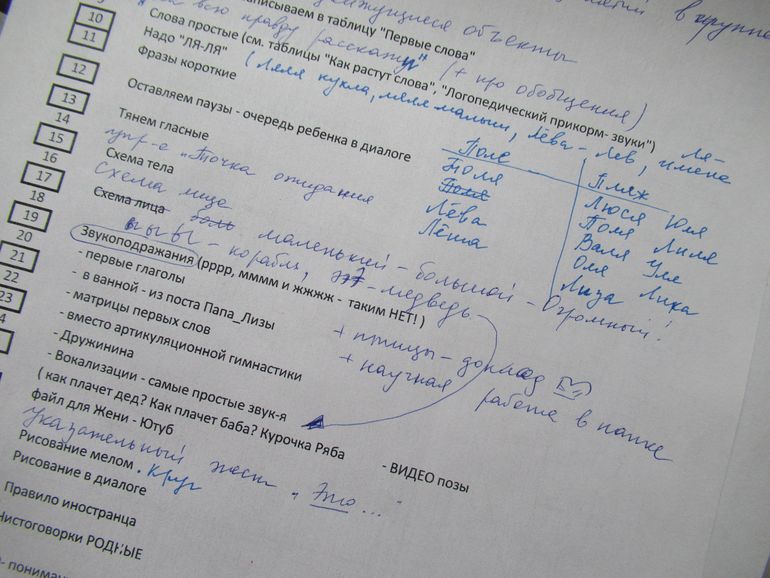 движущиеся объекты
записываем в таблицу "Первые слова"
всю правду расскажу (+ про обобщения)
10
Слова простые (см. таблицы "Как растут слова", "Логопедический прикорм- звуки")
11
Надо "ЛЯ-ЛЯ"
(Ляля кукла, ляля малыш, Лёва - Лев, имена Ля-
12
Фразы короткие
13
Оставляем паузы - очередь ребенка в диалоге
14
Тянем гласные
упр-е "Точка ожидания
15
Схема тела
Схема лица
16
Схема лица
17
маленький - большой - Огромный!
18
ЫЫЫ - корабль, - медведь -
Звукоподражания (рррр, мммм и жжжж - таким НЕТ! )
19
- первые глаголы
20
- в ванной - из поста Папа_Лизы
21
- матрицы первых слов
22
- вместо артикуляционной гимнастики
23
- Дружинина
- Вокализации - самые простые звук-я
( как плачет дед? Как плачет баба? Курочка Ряба
файл для Жени - Ютуб
- ВИДЕО позы
Поле Пляж
Поля Люся Юля
Поля Лиля
Лёва Валя Уле
Лёша Оля
Луза Лика
+ птицы - доклад
+ научная работа в папке
указательный жест и "Это ..."
Рисование мелом . круг
Рисование в диалоге
Правило иностранца
Чистоговорки РОДНЫЕ
- понимани